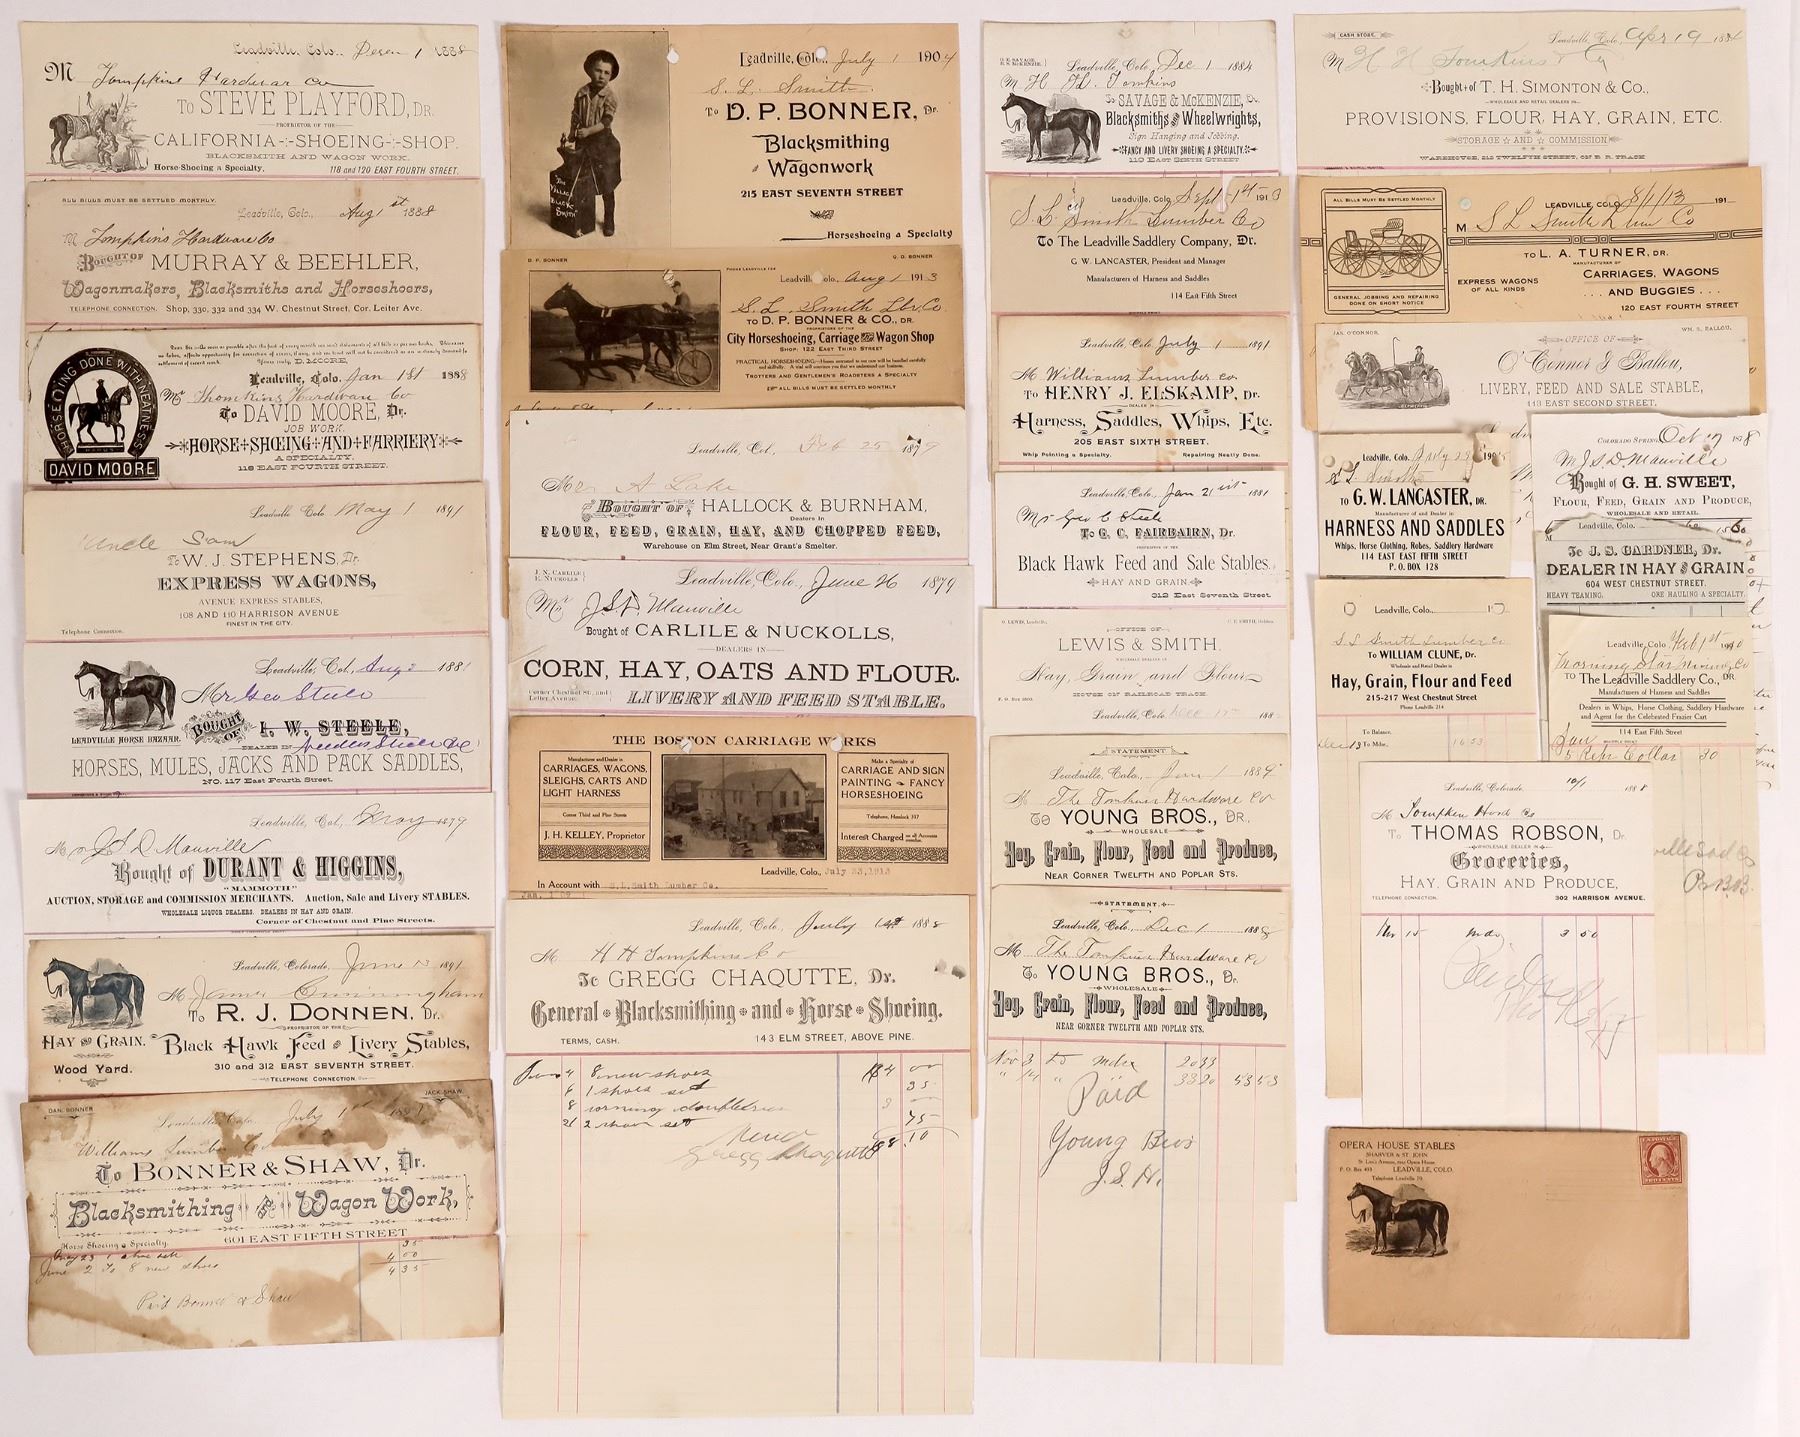 Leadville, Colo., Decem 1 1888
M Tompkins Hardwar Co
To STEVE PLAYFORD, DR.
PROPRIETOR OF THE
CALIFORNIA SHOEING SHOP.
BLACKSMITH AND WAGON WORK.
Horse-Shoeing a Specialty. 118 and 120 EAST FOURTH STREET.
ALL BILLS MUST BE SETTLED MONTHLY.
Leadville, Colo., Aug 1st 1888
M Tompkins Hardware Co
BOUGHT OF MURRAY & BEEHLER,
Wagonmakers, Blacksmiths and Horseshoers,
TELEPHONE CONNECTION. Shop, 330, 332 and 334 W. Chestnut Street, Cor. Leiter Ave.
HORSESHOEING DONE WITH NEATNESS
DAVID MOORE
Leadville, Colo. Jan 1st 1888
Mr Thomkins Hardware Co
To DAVID MOORE, Dr.
JOB WORK.
HORSE SHOEING AND FARRIERY
A SPECIALTY.
118 EAST FOURTH STREET.
Leadville Colo. May 1 1891
Uncle Sam
To W. J. STEPHENS, Dr.
EXPRESS WAGONS,
AVENUE EXPRESS STABLES,
108 AND 110 HARRISON AVENUE
FINEST IN THE CITY.
Telephone Connection.
Leadville, Col., Aug 2 1881
Mr Geo Steele
LEADVILLE HORSE BAZAAR.
BOUGHT OF I. W. STEELE,
DEALER IN
HORSES, MULES, JACKS AND PACK SADDLES,
NO. 117 East Fourth Street.
Leadville, Col., May 1879
Mr J S D Manville
Bought of DURANT & HIGGINS,
"MAMMOTH"
AUCTION, STORAGE and COMMISSION MERCHANTS. Auction, Sale and Livery STABLES.
WHOLESALE LIQUOR DEALERS. DEALERS IN HAY AND GRAIN.
Corner of Chestnut and Pine Streets.
Leadville, Colorado, June 13 1891
M James Cunningham
To R. J. DONNEN, Dr.
PROPRIETOR OF THE
HAY AND GRAIN. Black Hawk Feed and Livery Stables,
Wood Yard. 310 and 312 EAST SEVENTH STREET.
TELEPHONE CONNECTION
DAN. BONNER JACK SHAW.
Leadville, Colo., July 1st
Williams Lumber Co
To BONNER & SHAW, Dr.
Blacksmithing and Wagon Work,
Horse Shoeing a Specialty. 601 EAST FIFTH STREET
June 2 To 8 new shoes 4 00
4 35
Paid Bonner & Shaw
Leadville, Colo., July 1 1904
S. L. Smith
To D. P. BONNER, Dr.
Blacksmithing
and Wagonwork
215 EAST SEVENTH STREET
THE VILLAGE BLACK SMITH
Horseshoeing a Specialty
D. P. BONNER O. D. BONNER
Leadville, Colo., Aug 1 1913
S. L. Smith Lbr. Co.
To D. P. BONNER & CO., DR.
PROPRIETORS OF THE
City Horseshoeing, Carriage and Wagon Shop
SHOP: 122 EAST THIRD STREET
TROTTERS AND GENTLEMEN'S ROADSTERS A SPECIALTY
ALL BILLS MUST BE SETTLED MONTHLY
Leadville, Col., Feb 25 1879
Mr A Lake
BOUGHT OF HALLOCK & BURNHAM,
Dealers In
FLOUR, FEED, GRAIN, HAY, AND CHOPPED FEED,
Warehouse on Elm Street, Near Grant's Smelter.
J. N. CARLILE
E. NUCKOLLS
Leadville, Colo., June 26 1879
Mr. J S D Manville
Bought of CARLILE & NUCKOLLS,
DEALERS IN
CORN, HAY, OATS AND FLOUR.
Corner Chestnut St., and Leiter Avenue. LIVERY AND FEED STABLE.
THE BOSTON CARRIAGE WORKS
Manufacturer and Dealer in
CARRIAGES, WAGONS,
SLEIGHS, CARTS AND
LIGHT HARNESS
Corner Third and Pine Streets
J. H. KELLEY, Proprietor
Make a Specialty of
CARRIAGE AND SIGN
PAINTING FANCY
HORSESHOEING
Telephone, Hemlock 317
Interest Charged on all Accounts
Leadville, Colo., July 23, 1913
In Account with S. L. Smith Lumber Co.
Leadville, Colo., July 1st 1888
M H H Tompkins Co
To GREGG CHAQUTTE, Dr.
General Blacksmithing and Horse Shoeing.
TERMS, CASH. 143 ELM STREET, ABOVE PINE.
June 4 8 new shoes 4 00
6 1 shoes set 35
21 2 shoes set 75
Gregg Chaqutte
O. E. SAVAGE.
Leadville, Colo., Dec 1 1884
M H H Tomkins
To SAVAGE & McKENZIE, Dr.
Blacksmiths and Wheelwrights,
Sign Hanging and Jobbing.
FANCY AND LIVERY SHOEING A SPECIALTY.
110 EAST SIXTH STREET
Leadville, Colo. Sept 1st 1913
S. L. Smith Lumber Co
To The Leadville Saddlery Company, Dr.
G. W. LANCASTER, President and Manager
Manufacturers of Harness and Saddles
114 East Fifth Street
Leadville, Colo., July 1 1891
M Williams Lumber Co
To HENRY J. ELSKAMP, Dr.
DEALER IN
Harness, Saddles, Whips, Etc.
205 EAST SIXTH STREET.
Whip Pointing a Specialty. Repairing Neatly Done.
Leadville, Colo., Jan 21st 1881
Mr Geo C Steele
To G. C. FAIRBAIRN, Dr.
PROPRIETOR OF THE
Black Hawk Feed and Sale Stables.
HAY AND GRAIN.
312 East Seventh Street.
O. LEWIS, Leadville. C. E. SMITH, Holden.
OFFICE OF
LEWIS & SMITH,
WHOLESALE DEALERS IN
Hay, Grain and Flour
HOUSE ON RAILROAD TRACK.
Leadville, Colo. Dec 188
STATEMENT.
Leadville, Colo., Jan 1 1889
M The Tompkins Hardware Co
To YOUNG BROS., DR.
WHOLESALE
Hay, Grain, Flour, Feed and Produce,
NEAR CORNER TWELFTH AND POPLAR STS.
STATEMENT.
Leadville, Colo., Dec 1 1888
M The Tompkins Hardware Co
To YOUNG BROS., Dr.
WHOLESALE
Hay, Grain, Flour, Feed and Produce,
NEAR CORNER TWELFTH AND POPLAR STS.
Nov 3 to mdse 20 33
" 14 " 33 20 53 53
Paid
Young Bros
J. S. H.
CASH STORE.
Leadville, Colo., Apr 19 1884
M H. H. Tomkins & Co
Bought of T. H. SIMONTON & CO.,
WHOLESALE AND RETAIL DEALERS IN
PROVISIONS, FLOUR, HAY, GRAIN, ETC.
STORAGE AND COMMISSION
WAREHOUSE, 213 TWELFTH STREET, ON R. R. TRACK
ALL BILLS MUST BE SETTLED MONTHLY
GENERAL JOBBING AND REPAIRING
DONE ON SHORT NOTICE
LEADVILLE, COLO 8/1/13 191
M S L Smith Lum Co
TO L. A. TURNER, DR.
MANUFACTURER OF
CARRIAGES, WAGONS
EXPRESS WAGONS
OF ALL KINDS
AND BUGGIES
120 EAST FOURTH STREET
JAS. O'CONNOR. WM. S. BALLOU.
OFFICE OF
O'Connor & Ballou,
LIVERY, FEED AND SALE STABLE,
113 EAST SECOND STREET,
Leadville, Colo. July 29 190
S L Smith
To G. W. LANCASTER, DR.
Manufacturer of and Dealer in
HARNESS AND SADDLES
Whips, Horse Clothing, Robes, Saddlery Hardware
114 EAST EAST FIFTH STREET
P. O. BOX 128
COLORADO SPRINGS, Oct 17 1878
M J S D Manville
Bought of G. H. SWEET,
FLOUR, FEED, GRAIN AND PRODUCE,
WHOLESALE AND RETAIL.
Leadville, Colo.
To J. S. GARDNER, Dr.
DEALER IN HAY AND GRAIN
604 WEST CHESTNUT STREET.
HEAVY TEAMING. ORE HAULING A SPECIALTY.
Leadville, Colo.,
S L Smith Lumber Co
To WILLIAM CLUNE, Dr.
Wholesale and Retail Dealer in
Hay, Grain, Flour and Feed
215-217 West Chestnut Street
Phone Leadville 214
To Balance.
To Mdse. 16 53
Leadville, Colo. Feb 1st 1900
Morning Star Mining Co
To The Leadville Saddlery Co., DR.
Manufacturers of Harness and Saddles
Dealers in Whips, Horse Clothing, Saddlery Hardware
and Agent for the Celebrated Frazier Cart
114 East Fifth Street
Jan
Repr Collar 30
Leadville, Colorado. 10/1 1888
M Tompkins Hard Co
To THOMAS ROBSON, Dr.
WHOLESALE DEALER IN
Groceries,
HAY, GRAIN AND PRODUCE,
TELEPHONE CONNECTION. 302 HARRISON AVENUE.
15 mdse 3 50
OPERA HOUSE STABLES
SHARVER & ST. JOHN
St. Louis Avenue, near Opera House
P. O. Box 493 LEADVILLE, COLO.
Telephone Leadville 70